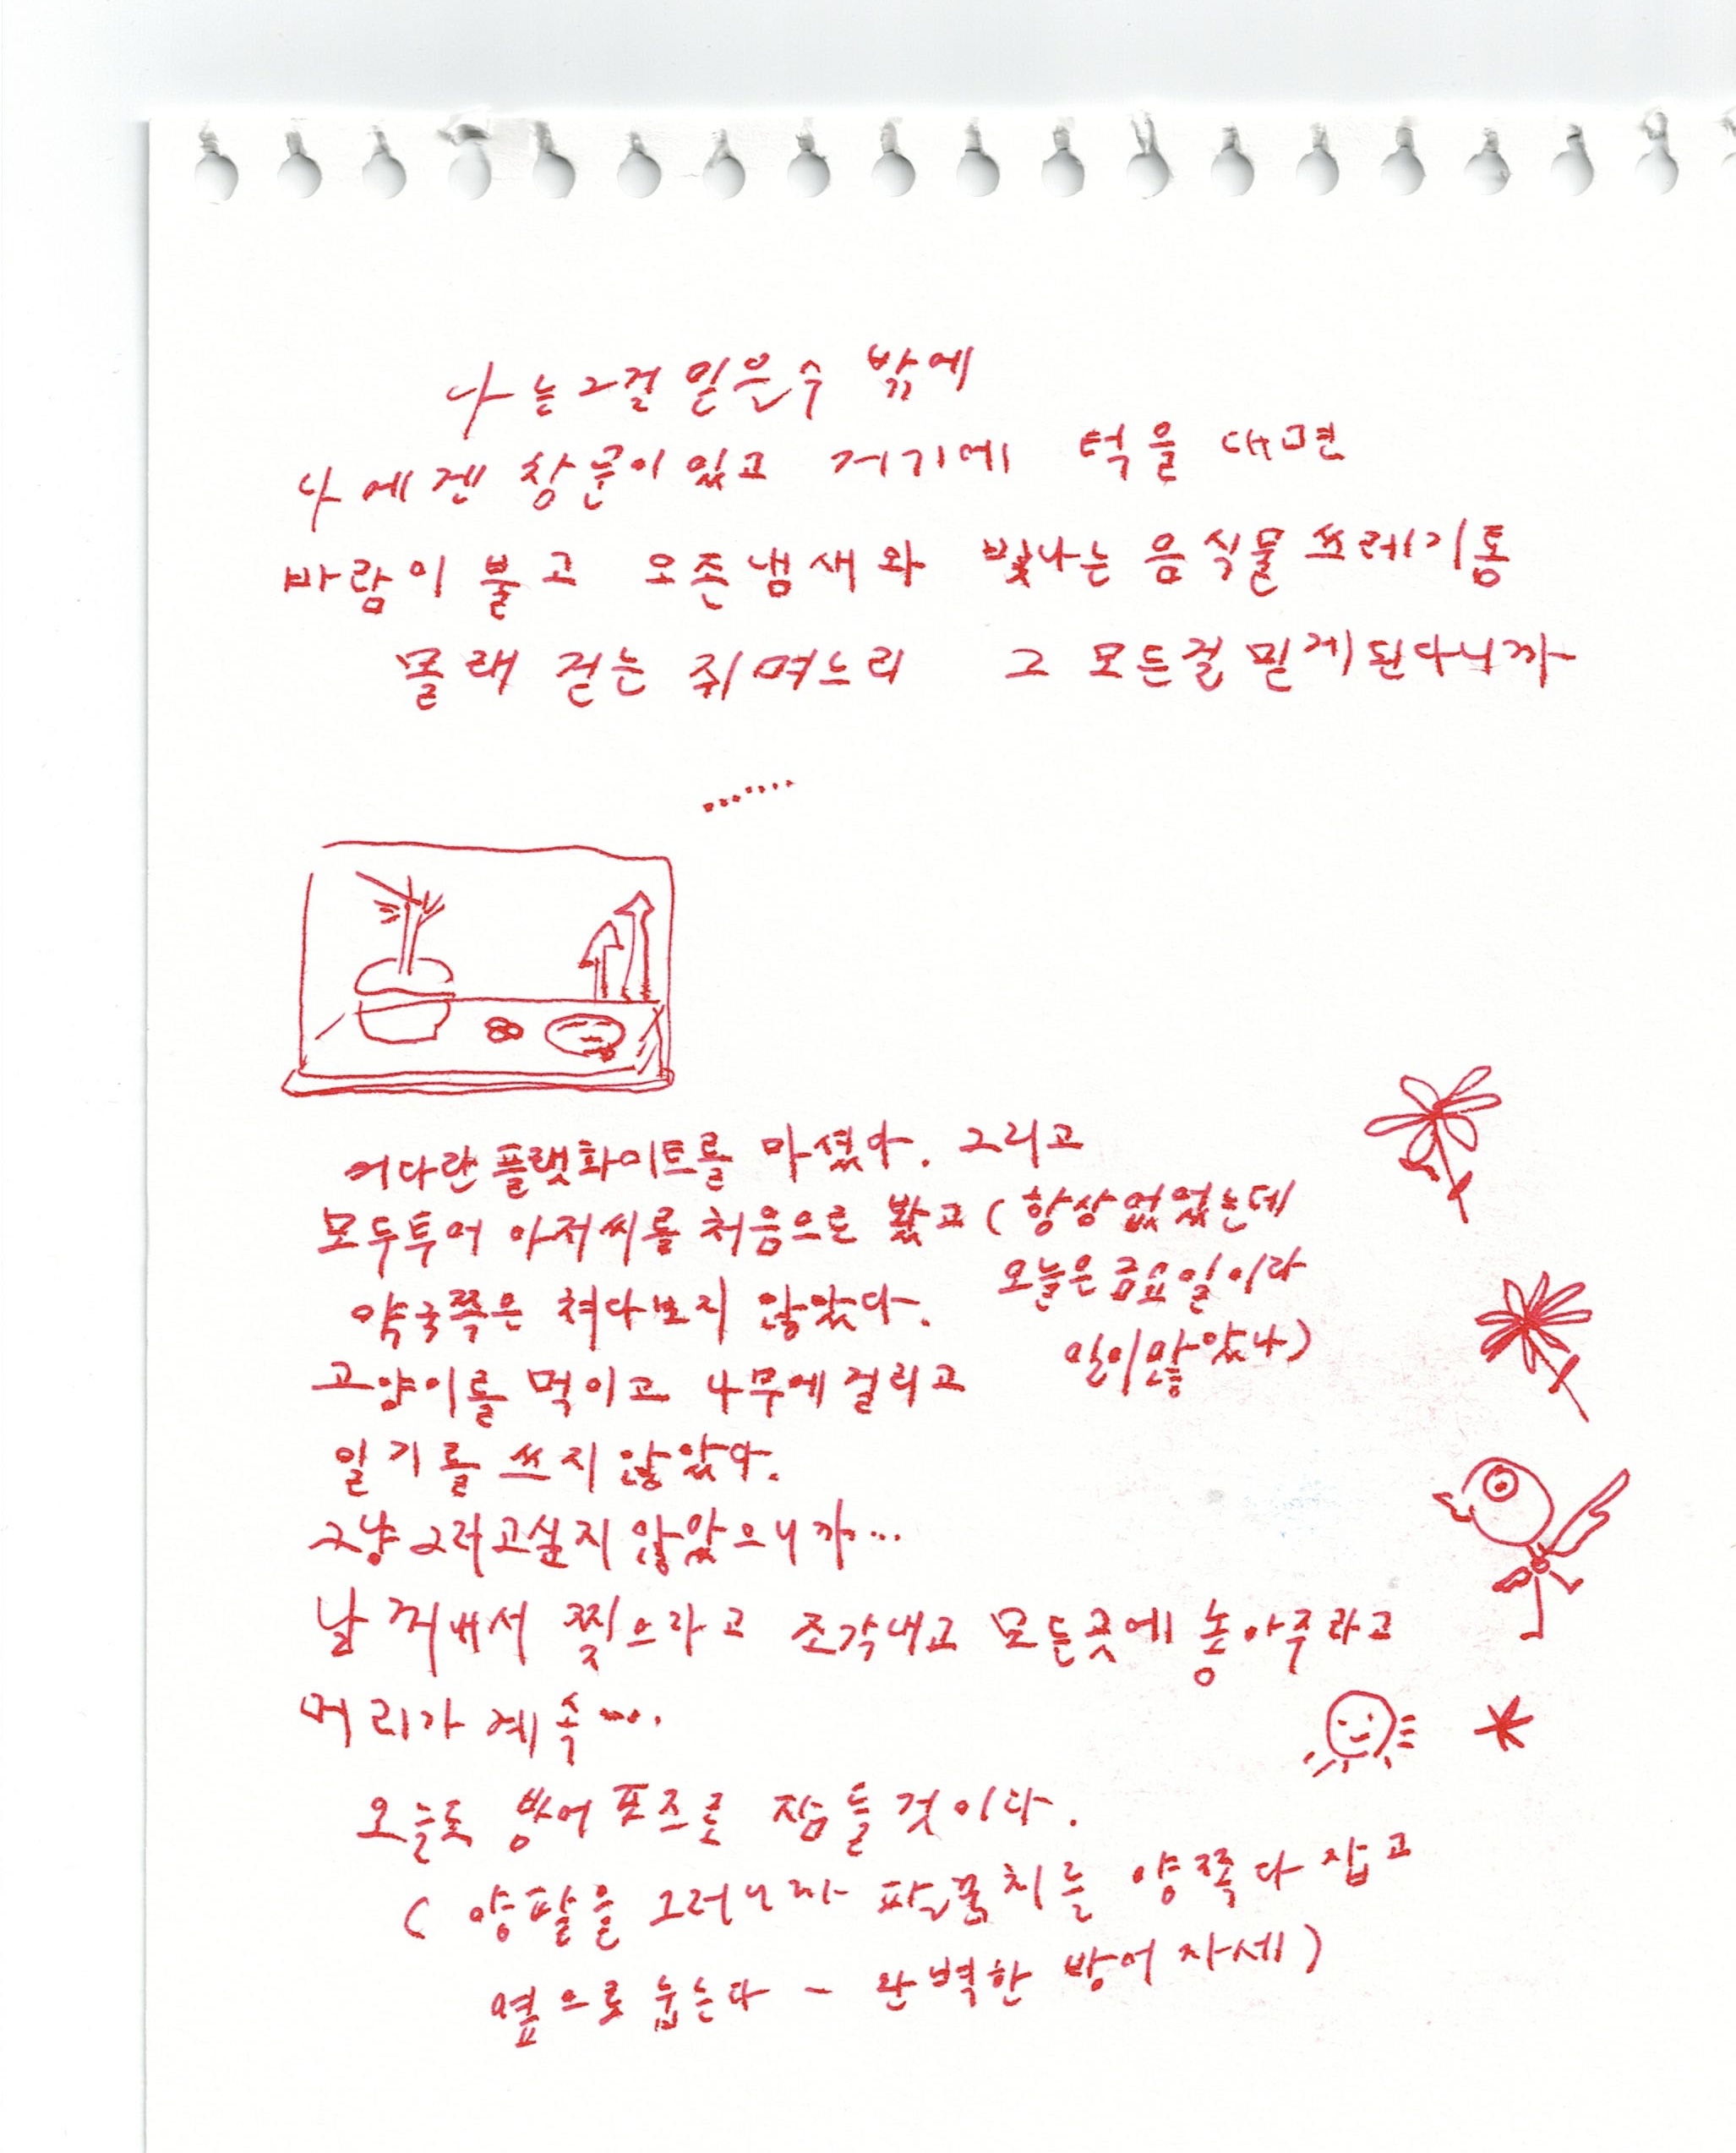 나는 그걸 믿을 수 밖에
나에겐 창문이 있고 거기에 턱을 대면
바람이 불고 오존냄새와 빛나는 음식물 쓰레기통
몰래 걷는 쥐며느리 그 모든걸 믿게된다니까
.......
커다란 플랫화이트를 마셨다. 그리고
모두투어 아저씨를 처음으로 봤고 (항상 없었는데
오늘은 금요일이라
일이 많았나)
약국쪽은 쳐다보지 않았다.
고양이를 먹이고 나무에 걸리고
일기를 쓰지 않았다.
그냥 그러고싶지 않았으니까...
날 꺼내서 찢으라고 조각내고 모든곳에 놓아주라고
머리가 계속....
오늘도 방어 포즈로 잠들 것이다.
( 양팔을 그러니까 팔꿈치를 양쪽 다 잡고
옆으로 눕는다 - 완벽한 방어 자세)